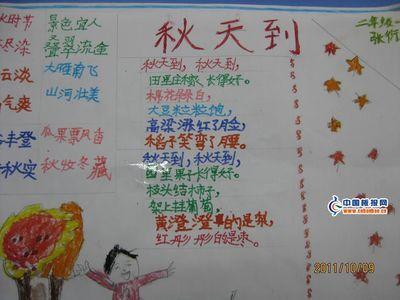 秋天到
二年级一
秋时节
云淡
气爽
丰登
秋实
景色宜人
叠翠流
大雁南飞
山河壮美
瓜果飘香
秋收冬藏
秋天到，秋天到，
田里庄稼长得好。
棉花朵朵白，
大豆粒粒饱，
高粱涨红了脸，
稻子笑弯了腰。
秋天到，秋天到，
园里果子长得好。
枝头结柿子，
架上挂葡萄，
黄澄澄的是梨，
红彤彤的是枣。
中国板报网
www.cnbanbao.cn
2011/10/09